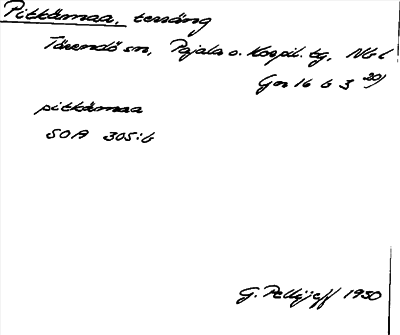 Pitkämaa, terräng
Tärendö sn, Pajala o. Korpil. tg, Nbl
Gon 16 b 3 20)
pitkämaa
SOA 305:b
G. Pellijeff 1950